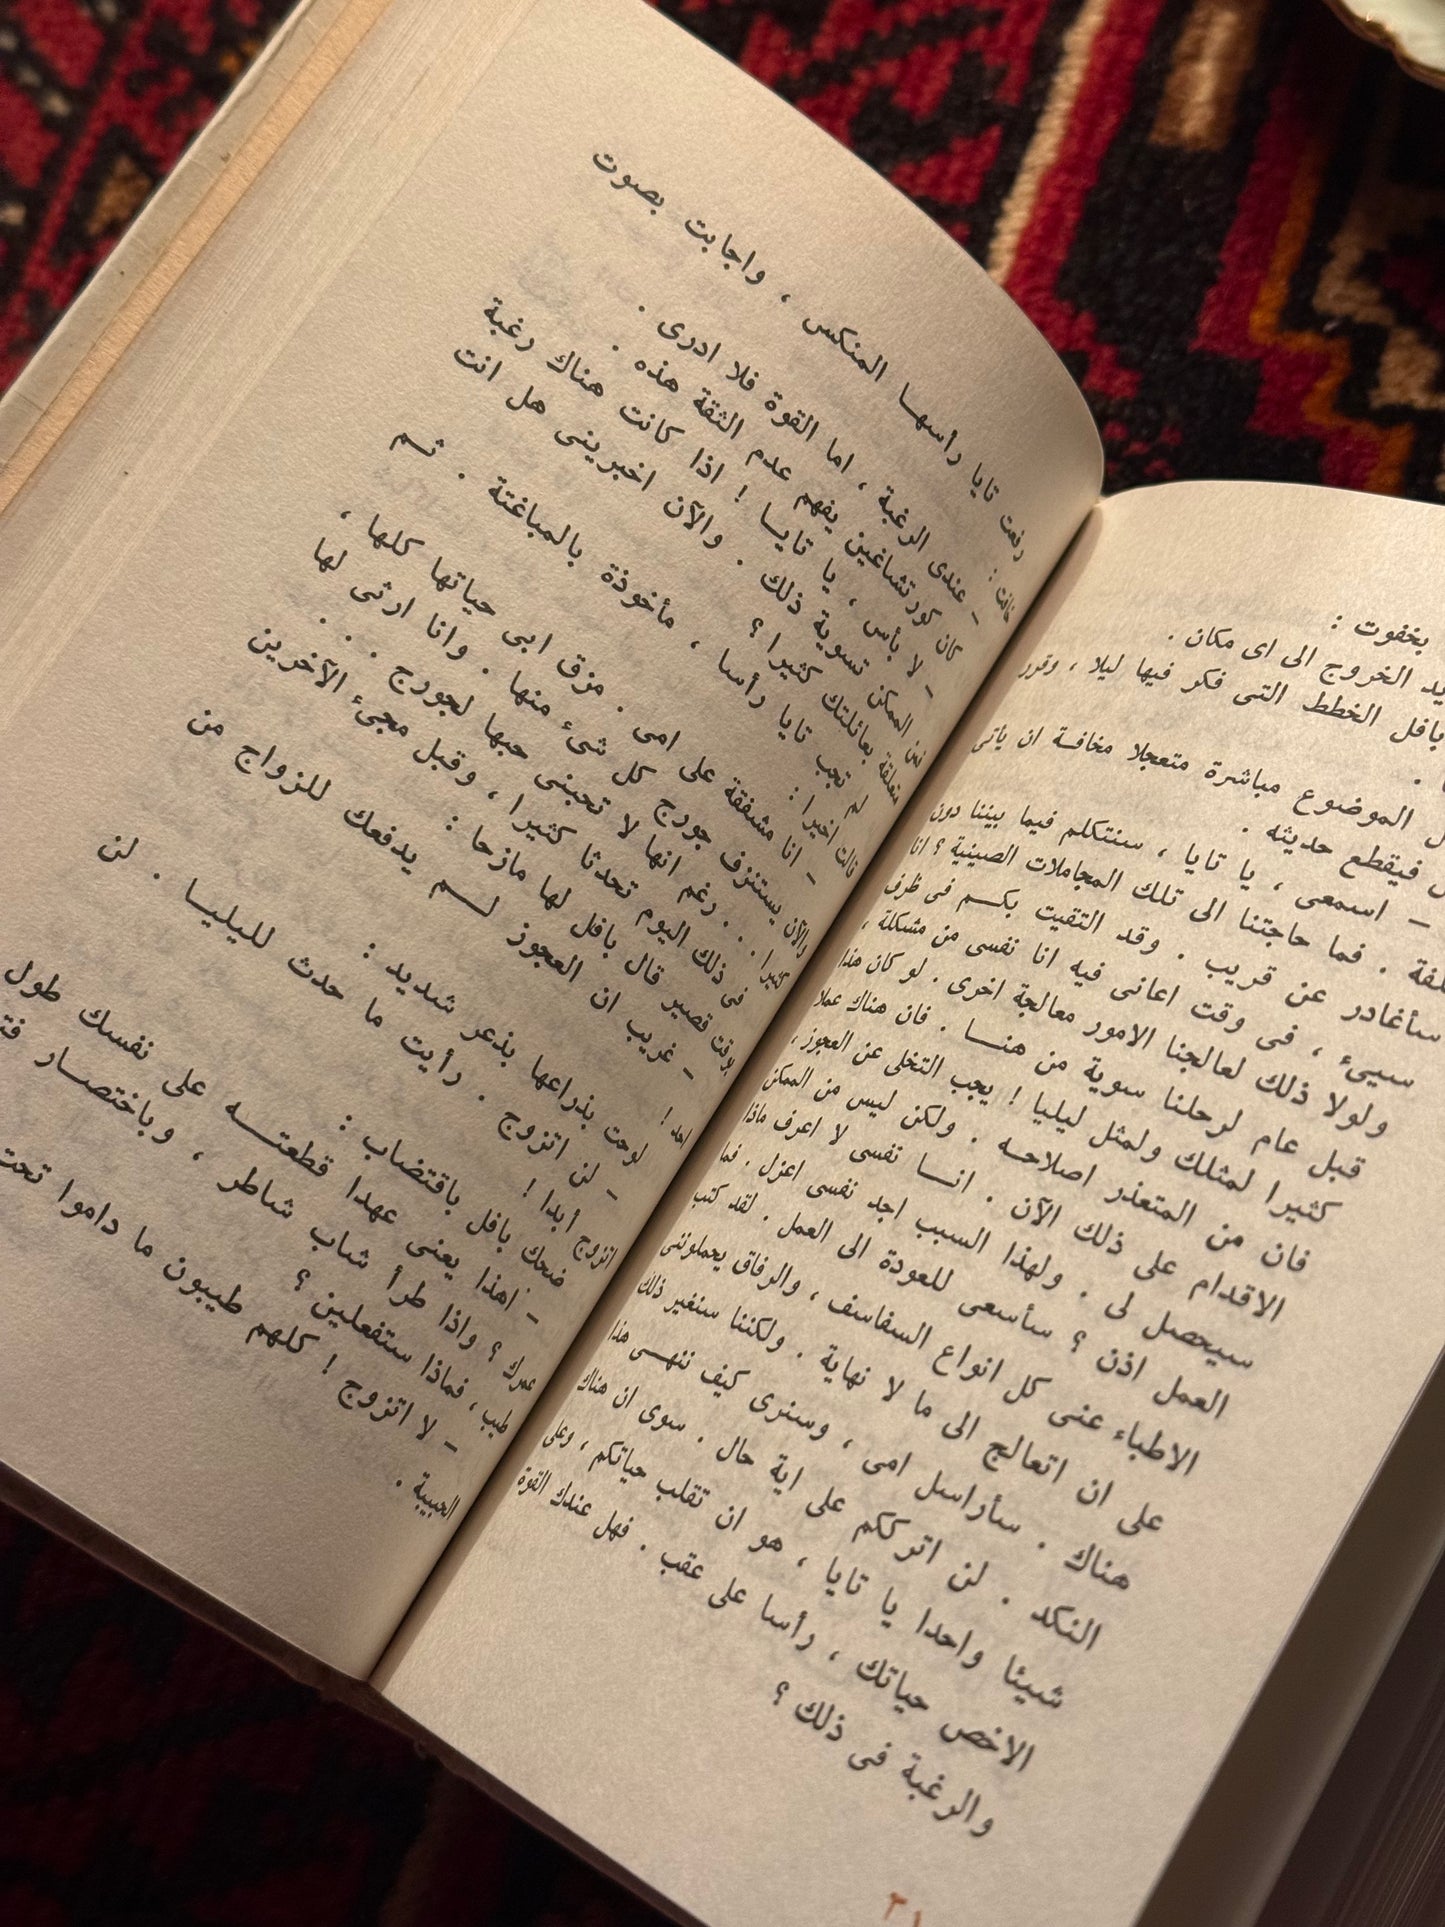 بخفوت :
يد الخروج الى اى مكان .
بافل الخطط التى فكر فيها ليلا ، وقرر
الموضوع مباشرة متعجلا مخافسة ان يأتى
فيقطع حديثه .
– اسمعى ، يا تايا ، سنتكلم فيما بيننا دون
لفة . فما حاجتنا الى تلك المجاملات الصينية ؟ انا
سأغادر عن قريب . وقد التقيت بكسم فى ظرف
سيىء ، فى وقت اعانى فيه انا نفسى من مشكلة ،
ولولا ذلك لعالجنا الامور معالجة اخرى . لو كان هذا
قبل عام لرحلنا سوية من هنسا . فان هناك عملا
كثيرا لمثلك ولمثل ليليا ! يجب التخلى عن العجوز ،
فان من المتعذر اصلاحسه . ولكن ليس من الممكن
الاقدام على ذلك الآن . انسا نفسى لا اعرف ماذا
سيحصل لى . ولهذا السبب اجد نفسى اعزل . فما
العمل اذن ؟ سأسعى للعودة الى العمل . لقد كتب
الاطباء عنى كل انواع السفاسف ، والرفاق يحملوننى
على ان اتعالج الى ما لا نهاية . ولكننا سنغير ذلك
هناك . سأراسل امى ، وسنرى كيف ننهسى هذا
النكد . لن اترككم على اية حال . سوى ان هناك
شيئا واحدا يا تايا ، هو ان تقلب حياتكم ، وعلى
الاخص حياتك ، رأسا على عقب . فهل عندك القوة
والرغبة فى ذلك ؟
٣١
رفعت تايا رأسهسا المنكس ، واجابت بصوت
خافت :
– عندى الرغبة ، اما القوة فلا ادرى .
كان كورتشاغين يفهم عدم الثقة هذه .
– لا بأس ، يا تايسا ! اذا كانت هناك رغبة
فمن الممكن تسوية ذلك . والآن اخبرينى هل انت
متعلقة بعائلتك كثيرا ؟
لم تجب تايا رأسا ، مأخوذة بالمباغتة . ثسم
قالت اخيرا :
– انا مشفقة على امى . مزق ابى حياتها كلها ،
والآن يستنزف جورج كل شىء منها . وانا ارثى لها
كثيرا . . . رغم انها لا تحبنى حبها لجورج . . .
فى ذلك اليوم تحدثا كثيرا ، وقبل مجىء الآخرين
بوقت قصير قال بافل لها مازحا :
– غريب ان العجوز لسم يدفعك للزواج من
احد !
لوحت بذراعها بذعر شديد :
– لن اتزوج . رأيت ما حدث لليليسا . لن
اتزوج أبدا !
ضحك بافل باقتضاب :
– اهذا يعنى عهدا قطعتسه على نفسك طول
عمرك ؟ واذا طرأ شاب شاطر ، وباختصسار
طيب ، فماذا ستفعلين ؟
– لا اتزوج ! كلهم طيبون ما داموا تحت
الحبيبة .